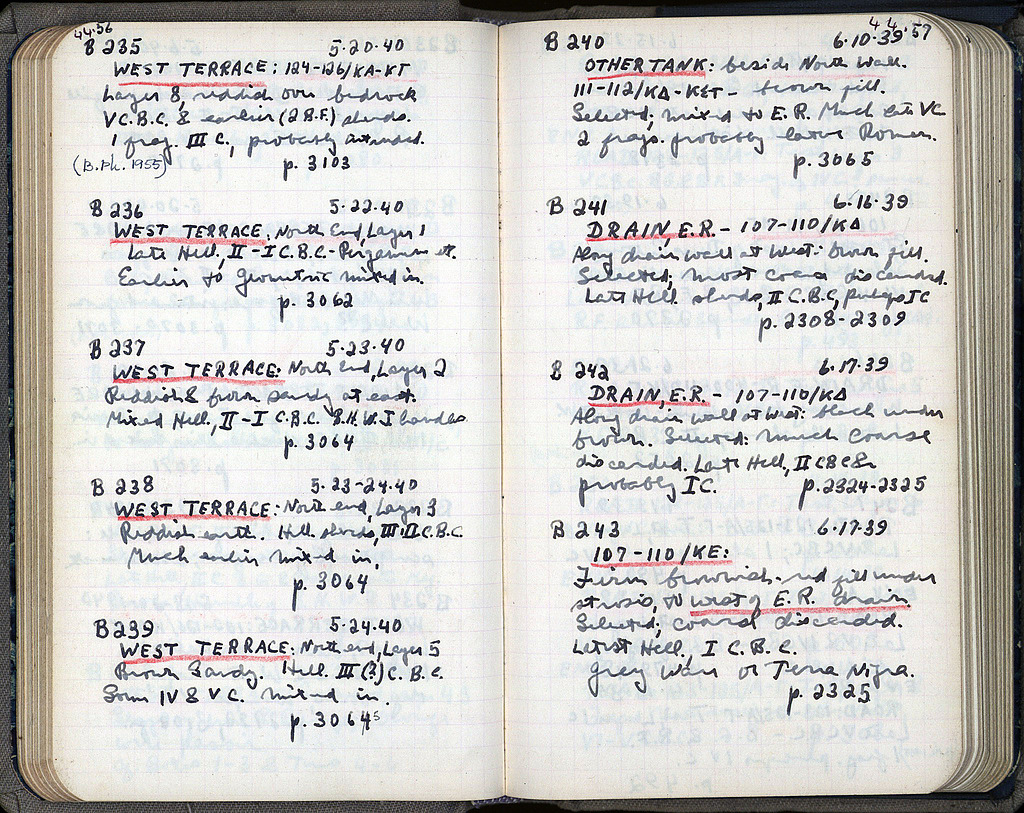 44.56
B 235 5.20.40
WEST TERRACE: 124-126/KA-KΓ
Layer 8, reddish over bedrock
V C. B.C. & earlier (2 R.F.) sherds.
1 frag. III C., probably intruded.
(B.Ph. 1955) p. 3103
B 236 5.22.40
WEST TERRACE; North End, Layer 1
Late Hell, II - I C. B.C. - Pergamene etc.
Earlier to geometric mixed in.
p. 3062
B 237 5.23.40
WEST TERRACE: North End, Layer 2
Reddish & brown sandy at east.
Mixed Hell., II - I C. B.C. handles
p. 3064
B 238 5.23-24.40
WEST TERRACE: North end, Layer 3
Reddish earth. Hell. sherds, III-II C. B.C.
Much earlier mixed in.
p. 3064
B 239 5.24.40
WEST TERRACE: North end, Layer 5
Brown sandy. Hell. III (?) C. B.C.
Some IV & V C. mixed in.
p. 3064⁵
44.57
B 240 6.10.39
OTHER TANK: beside North Wall.
111-112/KΔ-KΣΤ - brown fill.
Selected; mixed to E. R. Much late V C.
2 frags. probably late Roman.
p. 3065
B 241 6.16.39
DRAIN, E.R. - 107-110/KΔ
Along drain wall at West: brown fill.
Selected, most coarse discarded.
Late Hell. sherds, II C. B.C., perhaps I C
p. 2308-2309
B 242 6.17.39
DRAIN, E.R. - 107-110/KΔ
Along drain wall at West: black under
brown. Selected: much coarse
discarded. Late Hell, II C B C &
probably I C. p. 2324-2325
B 243 6.17.39
107-110/KE:
Firm brownish-red fill under
strosis, to west of E. R. drain.
Selected; coarse discarded.
Latest Hell., I C. B.C.
Grey Ware or Terra Nigra.
p. 2325